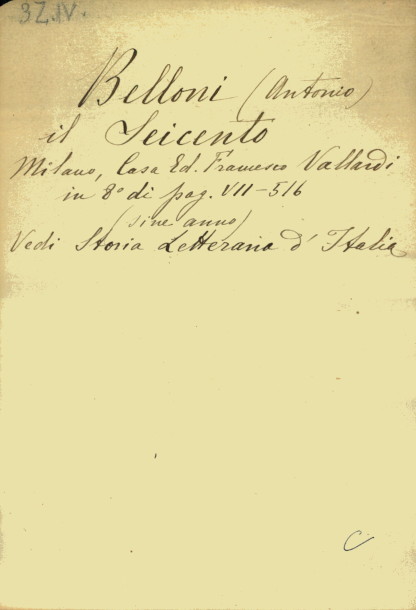 3Z.IV.
Belloni (Antonio)
il Seicento
Milano, Casa Ed. Francesco Vallardi
in 8º di pag. VII-516
(sine anno)
Vedi Storia Letteraria d'Italia
C